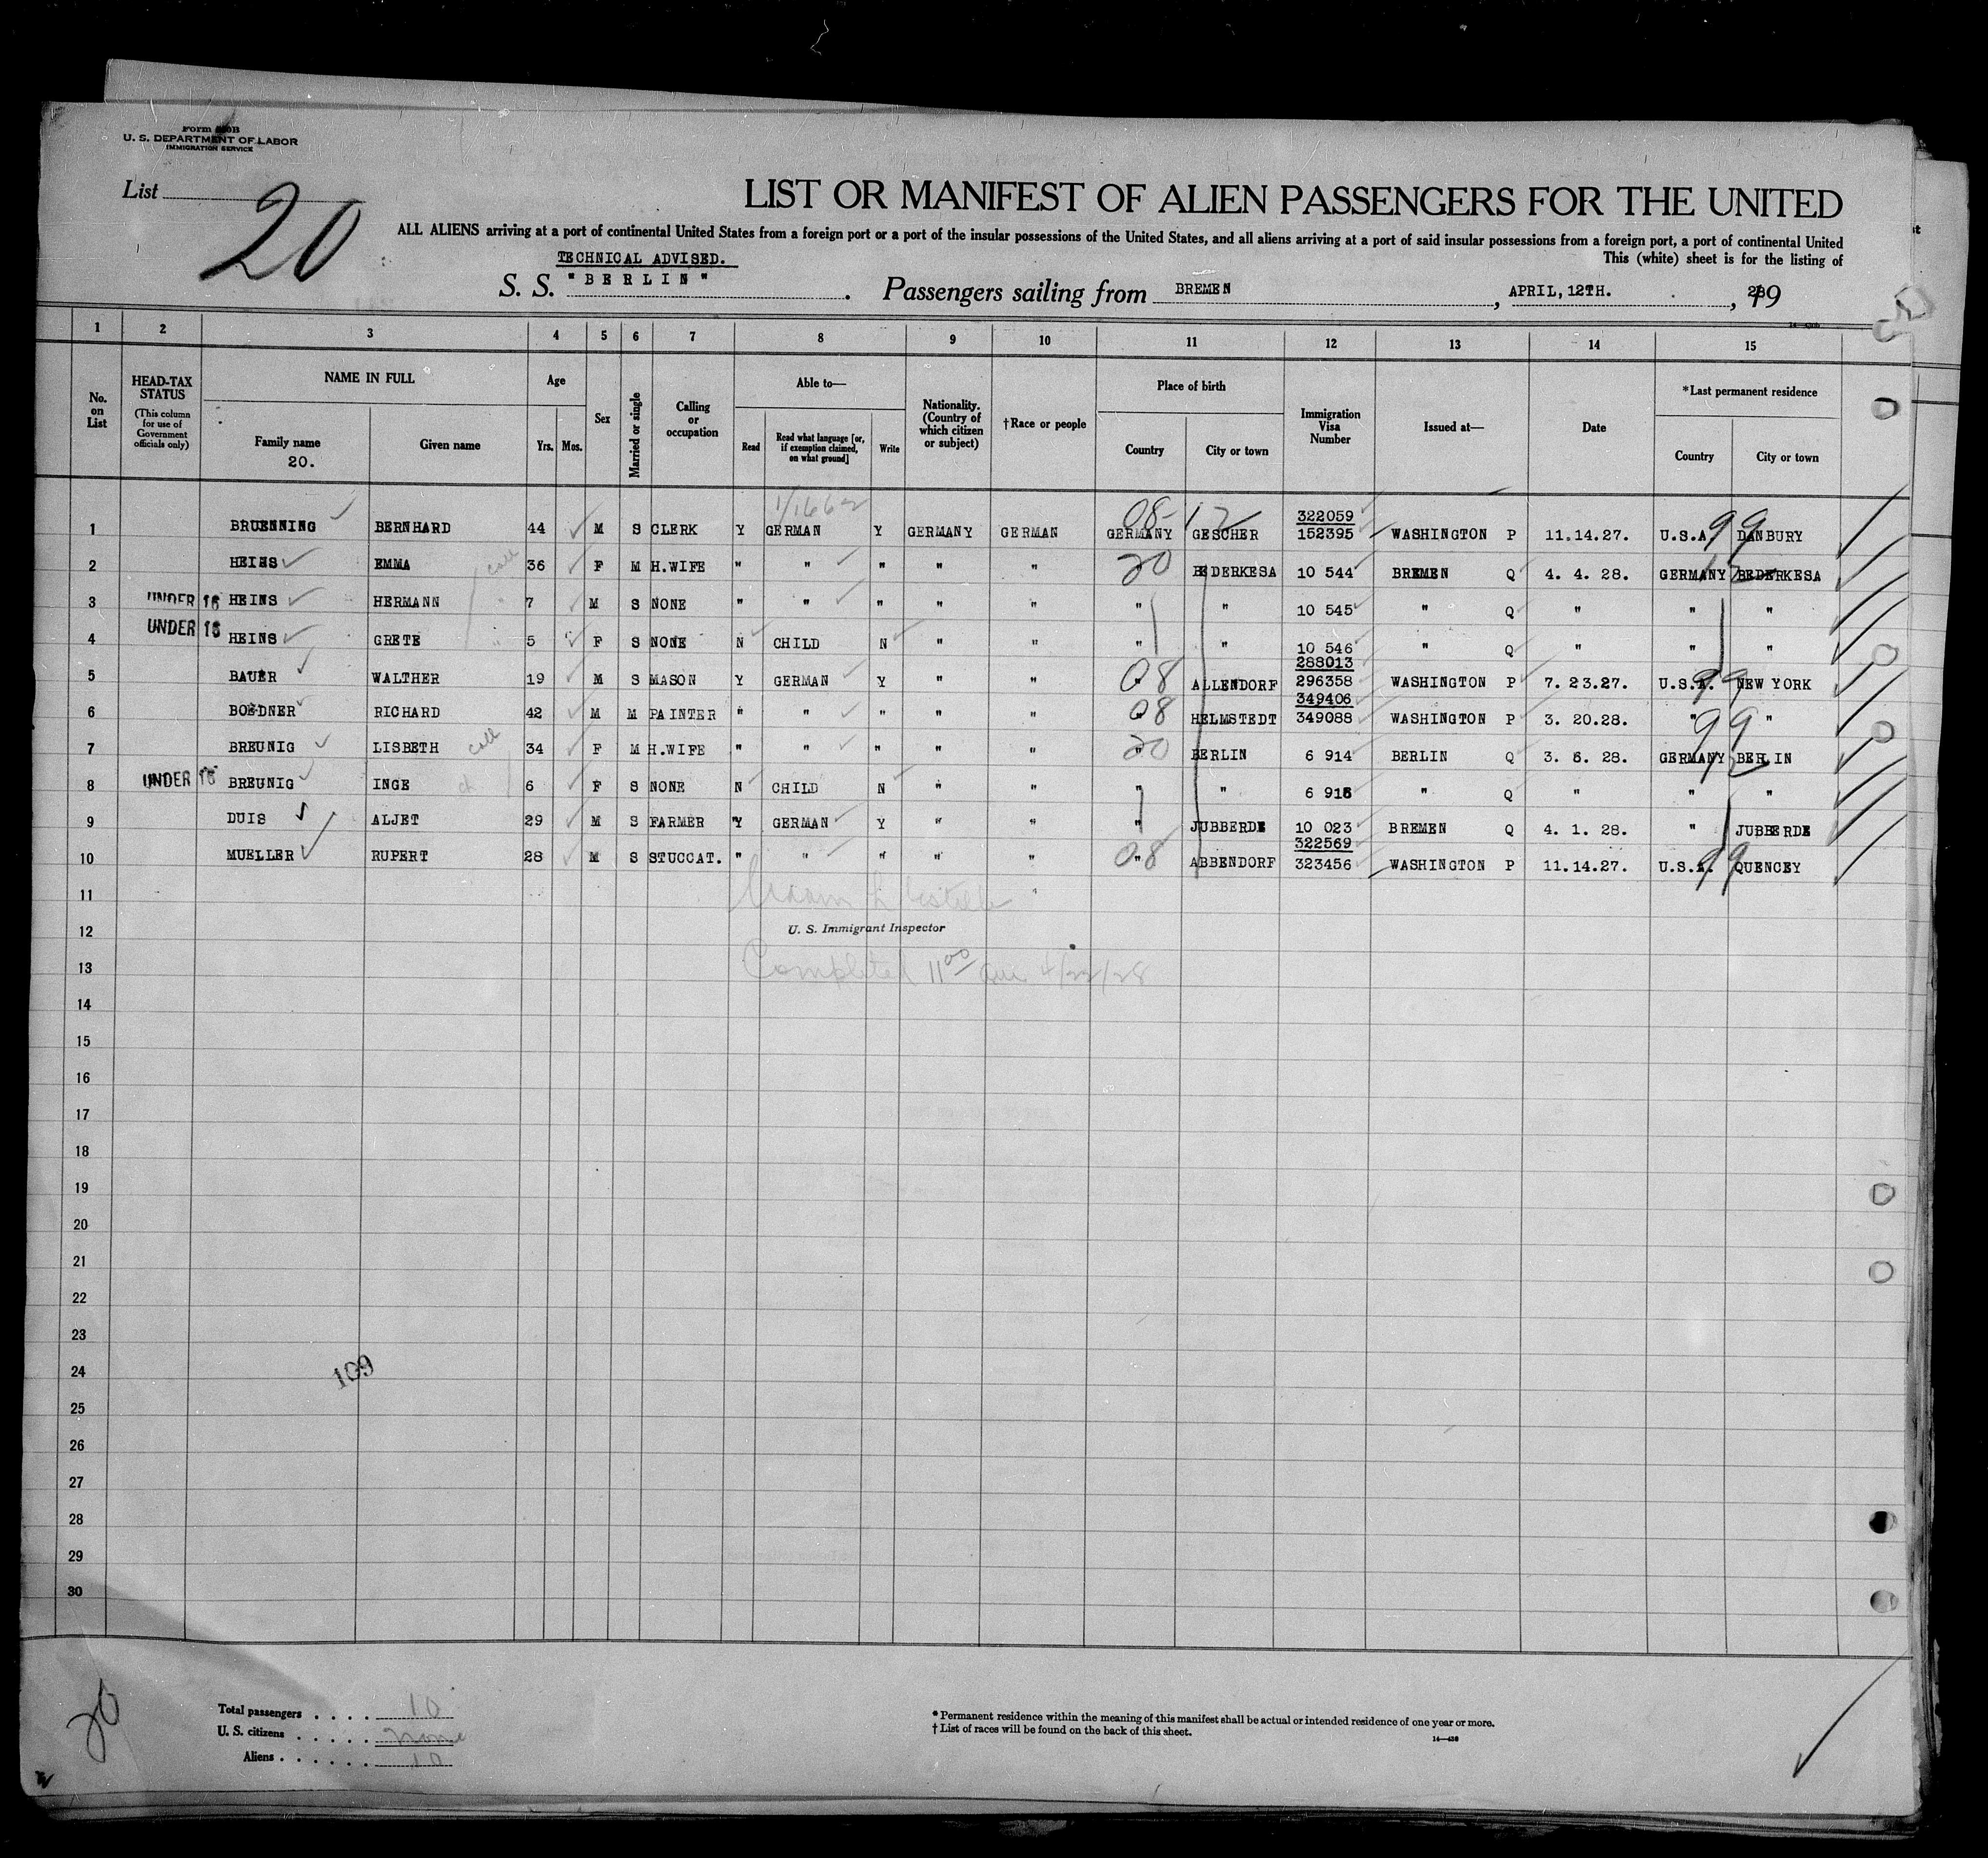 Form 500B
U. S. DEPARTMENT OF LABOR
IMMIGRATION SERVICE
List 20
LIST OR MANIFEST OF ALIEN PASSENGERS FOR THE UNITED
ALL ALIENS arriving at a port of continental United States from a foreign port or a port of the insular possessions of the United States, and all aliens arriving at a port of said insular possessions from a foreign port, a port of continental United
This (white) sheet is for the listing of
TECHNICAL ADVISED.
S. S. "BERLIN". Passengers sailing from BREMEN, APRIL, 12TH., 28
1 2 3 4 5 6 7 8 9 10 11 12 13 14 15
No. on List
HEAD-TAX STATUS (This column for use of Government officials only)
NAME IN FULL
Family name
20.
Given name
Age
Yrs. Mos.
Sex
Married or single
Calling or occupation
Able to—
Read
Read what language [or, if exemption claimed, on what ground]
Write
Nationality. (Country of which citizen or subject)
†Race or people
Place of birth
Country
City or town
Immigration Visa Number
Issued at—
Date
*Last permanent residence
Country
City or town
08-12 322059 99
1 BRUENNING BERNHARD 44 M S CLERK Y GERMAN Y GERMANY GERMAN GERMANY GESCHER 152395 WASHINGTON P 11.14.27. U.S.A. DANBURY
2 HEINS EMMA call 36 F M H.WIFE " " " " " 20 BEDERKESA 10 544 BREMEN Q 4. 4. 28. GERMANY BEDERKESA
3 UNDER 16 HEINS HERMANN " 7 M S NONE " " " " " " " 10 545 " Q " " "
4 UNDER 16 HEINS GRETE " 5 F S NONE N CHILD N " " " " 10 546 " Q " " "
288013
5 BAUER WALTHER 19 M S MASON Y GERMAN Y " " 08 " ALLENDORF 296358 WASHINGTON P 7. 23.27. U.S.A. 99 NEW YORK
349406
6 BOEDNER RICHARD 42 M M PAINTER " " " " " 08 " HELMSTEDT 349088 WASHINGTON P 3. 20.28. " 99 "
7 BREUNIG LISBETH call 34 F M H.WIFE " " " " " 20 " BERLIN 6 914 BERLIN Q 3. 6. 28. GERMANY BERLIN
8 UNDER 16 BREUNIG INGE ch 6 F S NONE N CHILD N " " " " 6 915 " Q " " "
9 DUIS ALJET 29 M S FARMER Y GERMAN Y " " " JUBBERDE 10 023 BREMEN Q 4. 1. 28. " JUBBERDE
322569
10 MUELLER RUPERT 28 M S STUCCAT. " " " " " 08 " ABBENDORF 323456 WASHINGTON P 11.14.27. U.S.A. 99 QUENCEY
11
12 U. S. Immigrant Inspector
13 Completed 11 00 am 4/22/28
14
15
16
17
18
19
20
21
22
23
24 109
25
26
27
28
29
30
20
Total passengers . . . . 10
U. S. citizens . . . . . none
Aliens . . . . . . 10
* Permanent residence within the meaning of this manifest shall be actual or intended residence of one year or more.
† List of races will be found on the back of this sheet.
14—430